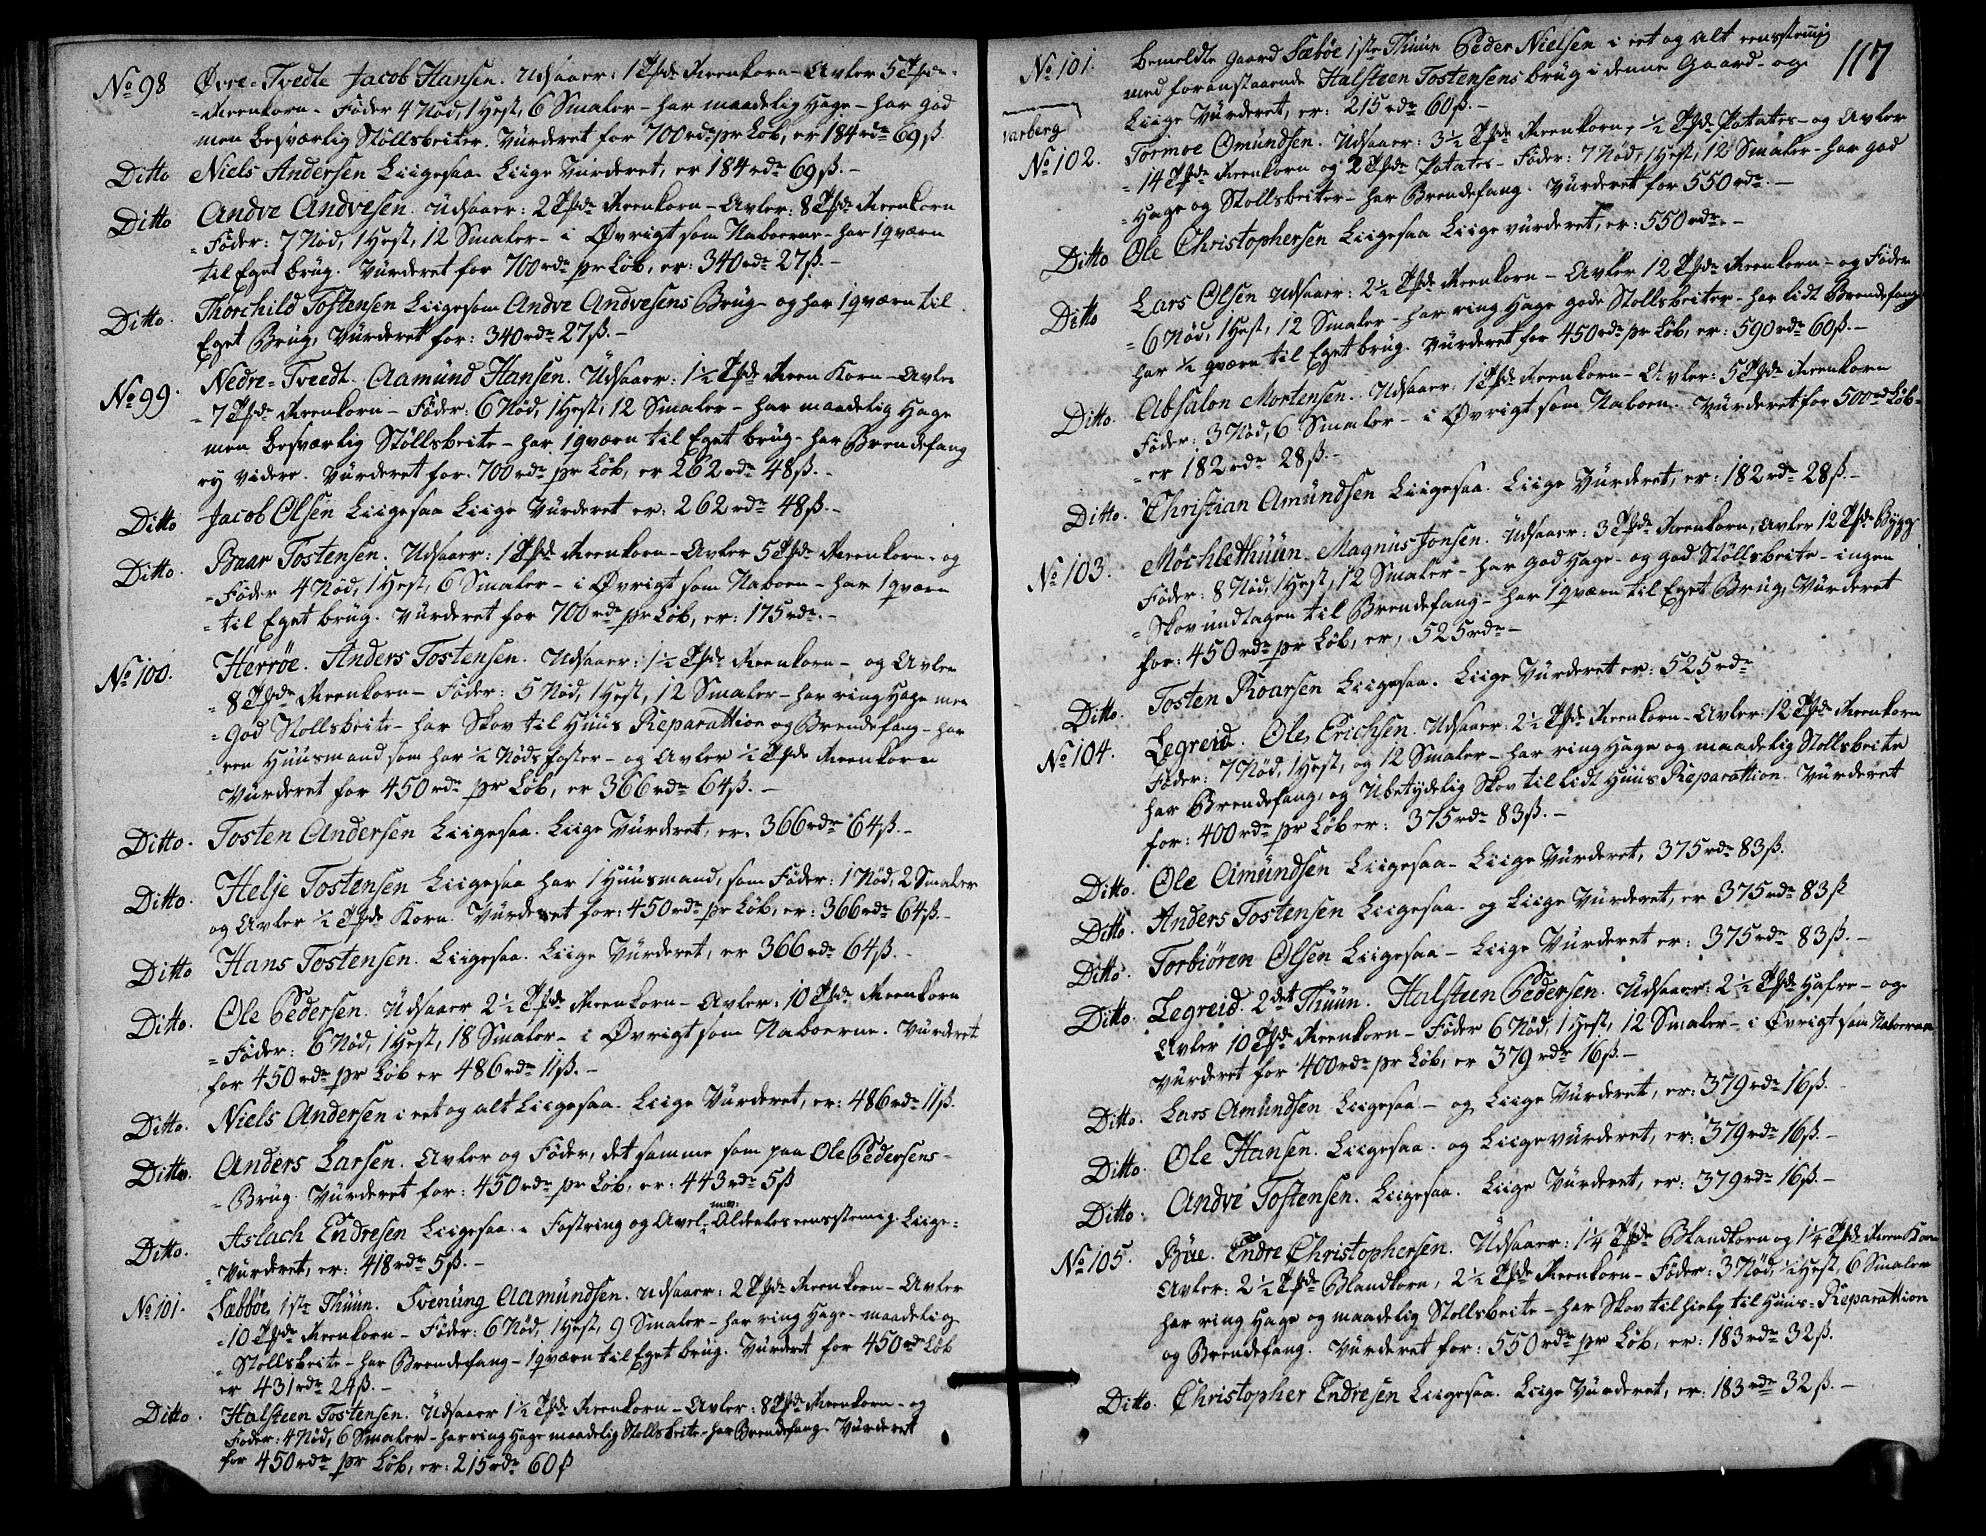 No 98 Øvre-Tvedte Jacob Hansen. Udsaaer: 1 Tde Reenkorn – Avler 5 Tde
Reenkorn – Føder 4 Nød, 1 Hest, 6 Smaler – har maadelig Hage – har god
men besværlig Støllsbeiter. Vurderet for 700 rdr pr Løb, er 184 rdr 69 ß.
Ditto Niels Andersen Liigesaa Liige Vurderet, er 184 rdr 69 ß. –
Ditto Andve Andvesen. Udsaaer: 2 Tde Reenkorn – Avler: 8 Tde Reenkorn
Føder: 7 Nød, 1 Hest, 12 Smaler – i Øvrigt som Naboerne – har 1 qværn
til Eget brug. Vurderet for 700 rdr pr Løb, er: 340 rdr 27 ß. –
Ditto. Thorchild Tostensen Liigesom Andve Andvesens Brug – og har 1 qværn til
Eget Brug, Vurderet for: 340 rdr 27 ß. –
No 99. Nedre-Tveedt. Aamund Hansen. Udsaaer: 1½ Tde Reen Korn – Avler
7 Tde Reenkorn – Føder: 6 Nød, 1 Hest, 12 Smaler – har maadelig Hage
men besværlig Støllsbeite – har 1 qværn til Eget brug – har Brendefang
ey videre. Vurderet for. 700 rdr pr Løb, er 262 rdr 48 ß. –
Ditto Jacob Olsen Liigesaa Liige Vurderet er: 262 rdr 48 ß. –
Ditto. Baar Tostensen. Udsaaer: 1 Tde Reenkorn – Avler 5 Tde Reenkorn – og
Føder 4 Nød, 1 Hest, 6 Smaler – i Øvrigt som Naboen – har 1 qværn
til Eget brug. Vurderet for 700 rdr pr Løb, er: 175 rdr. –
No 100. Herrøe. Anders Tostensen. Udsaaer: 1½ Tde Reenkorn – og Avler
8 Tde Reenkorn – Føder: 5 Nød, 1 Hest, 12 Smaler – har ring Hage men
God Støllsbeite – har Skov til Huus Reparattion og Brendefang – har
een Huusmand som har ½ Nøds foster – og Avler ½ Tde Reenkorn
Vurderet for 450 rdr pr Løb, er 366 rdr 64 ß. –
Ditto. Tosten Andersen Liigesaa. Liige Vurdret, er, 366 rdr 64 ß. –
Ditto. Helje Tostensen Liigesaa har 1 Huusmand, som Føder: 1 Nød, 2 Smaler
og Avler ½ Tde Korn. Vurderet for: 450 rdr pr Løb, er: 366 rdr 64 ß. –
Ditto Hans Tostensen. Liigesaa. Liige Vurderet, er 366 rdr 64 ß. –
Ditto. Ole Pedersen. Udsaaer 2½ Tde Reenkorn – Avler: 10 Tde Reenkorn
Føder: 6 Nød, 1 Hest, 18 Smaler – i Øvrigt som Naboerne. Vurderet
for 450 rdr pr Løb er 486 rdr 11 ß. –
Ditto. Niels Andersen i eet og alt Liigesaa. Liige Vurderet, er: 486 rdr 11 ß.
Ditto. Anders Larsen. Avler og Føder, det samme som paa Ole Pedersens –
Brug. Vurderet for: 450 rdr pr Løb, er: 443 rdr 5 ß
Ditto. Aslach Endresen Liigesaa. Fostring og Avel – Aldeeles eensstemig. Liige
Vurderet, er: 418 rdr 5 ß. –
No 101. Sæbbøe 1ste Thuun. Svenung Aamundsen. Udsaaer: 2 Tde Reenkorn – Avler
10 Tde Reenkorn – Føder: 6 Nød, 1 Hest, 9 Smaler – har ring Hage – maadelig
Støllsbeite – har Brendefang – 1 qværn til Eget brug. Vurderet for 450 rdr Løb
er 431 rdr 24 ß. –
Ditto. Halsteen Tostensen. Udsaaer 1½ Tde Reenkorn – Avler: 8 Tde Reenkorn – og
Føder: 4 Nød, 6 Smaler – har ring Hage maadelig Støllsbeite – har Brendefang. Vurderet
for 450 rdr pr Løb, er: 215 rdr 60 ß
117
No 101. bemeldte Gaard Sæbøe 1ste Thuun Peder Nielsen i eet og alt eensstemig
med foranstaaende Halsteen Tostensens brug i denne Gaard – og
Liige Vurderet, er: 215 rdr 60 ß. –
Varberg
No 102. Tormoe Omundsen. Udsaaer: 3½ Tde Reenkorn, ½ Tde Potates – og Avler
14 Tde Reenkorn og 2 Tde Potates – Føder: 7 Nød, 1 Hest, 12 Smaler – har god
Hage og Støllsbeiter – har Brendefang. Vurderet for 550 rdr. –
Ditto Ole Christophersen Liigesaa Liige vurderet, er: 550 rdr. –
Ditto Lars Olsen Udsaaer: 2½ Tde Reenkorn – Avler 12 Tde Reenkorn – og Føder
6 Nød, 1 Hest, 12 Smaler – har ring Hage gode Støllsbeiter – har lidt Brendefang
har ½ qværn til Eget brug. Vurderet for 450 rdr pr Løb, er: 590 rdr 60 ß. –
Ditto. Absalon Mortensen. Udsaaer: 1 Tde Reenkorn – Avler: 5 Tde Reenkorn
Føder: 3 Nød, 6 Smaler – i Øvrigt som Naboen. Vurderet for 500 rdr Løb
er 182 rdr 28 ß. –
Ditto. Christian Amundsen Liigesaa. Liige Vurderet, er: 182 rdr 28 ß. –
No 103. Møchlethuun. Magnus Jonsen. Udsaaer: 3 Tde Reenkorn, Avler 12 Tde Bygg
Føder: 8 Nød, 1 Hest, 12 Smaler – har god Hage – og god Støllsbeite – ingen
Skov undtagen til Brendefang – har 1 qværn til Eget Brug, Vurderet
for: 450 rdr pr Løb, er, 525 rdr –
Ditto. Tosten Roarsen Liigesaa. Liige Vurderet er: 525 rdr
No 104. Legreid. Ole Erichsen. Udsaaer: 2½ Tde Reenkorn – Avler: 12 Tde Reenkorn
Føder: 7 Nød, 1 Hest, og 12 Smaler – har ring Hage og maadelig Støllsbeite
har Brendefang, og Ubetydelig Skov til lidt Huus Reparattion. Vurderet
for: 400 rdr pr Løb er: 375 rdr 83 ß. –
Ditto. Ole Amundsen Liigesaa – Liige Vurderet, 375 rdr 83 ß.
Ditto. Anders Tostensen Liigesaa – og Liige Vurderet, er 375 rdr 83 ß
Ditto. Torbiören Olsen Liigesaa – Liige Vurderet er: 375 rdr 83 ß. –
Ditto. Legreid. 2det Thuun. Halsteen Pedersen. Udsaaer: 2½ Tde Hafre – og
Avler 10 Tde Reenkorn – Føder 6 Nød, 1 Hest, 12 Smaler – i Øvrigt som Naboerne
Vurderet for 400 rdr pr Løb, er 379 rdr 16 ß. –
Ditto. Lars Amundsen Liigesaa – og Liige Vurderet, er: 379 rdr 16 ß.
Ditto. Ole Hansen. Liigesaa. og Liige vurderet, er: 379 rdr 16 ß. –
Ditto. Andve Tostensen. Liigesaa. Liige Vurderet, er: 379 rdr 16 ß. –
No 105. Bue. Endre Christophersen. Udsaaer: 1¼ Tde Blandkorn og 1¼ Tde Reen Korn
Avler: 2½ Tde Blandkorn, 2½ Tde Reenkorn – Føder: 3 Nød, ½ Hest, 6 Smaler
har ring Hage og maadelig Støllsbeite – har Skov til hielp til Huus-Reparattion
og Brendefang. Vurderet for: 550 rdr pr Løb, er: 183 rdr 32 ß.
Ditto. Christopher Endresen Liigesaa. Liige Vurderet, er: 183 rdr 32 ß. –